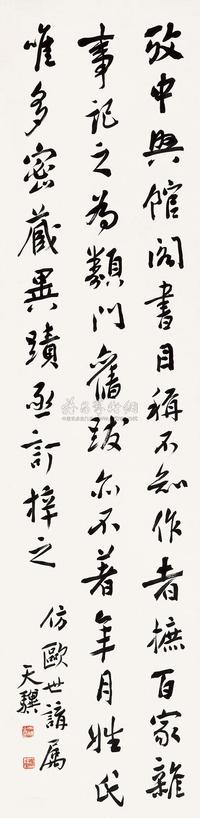 攷中興館閣書目稱不知作者摭百家雜
事記之為類門舊跋亦不著年月姓氏
唯多密藏異蹟亟訂梓之
仿歐世講屬
天驥